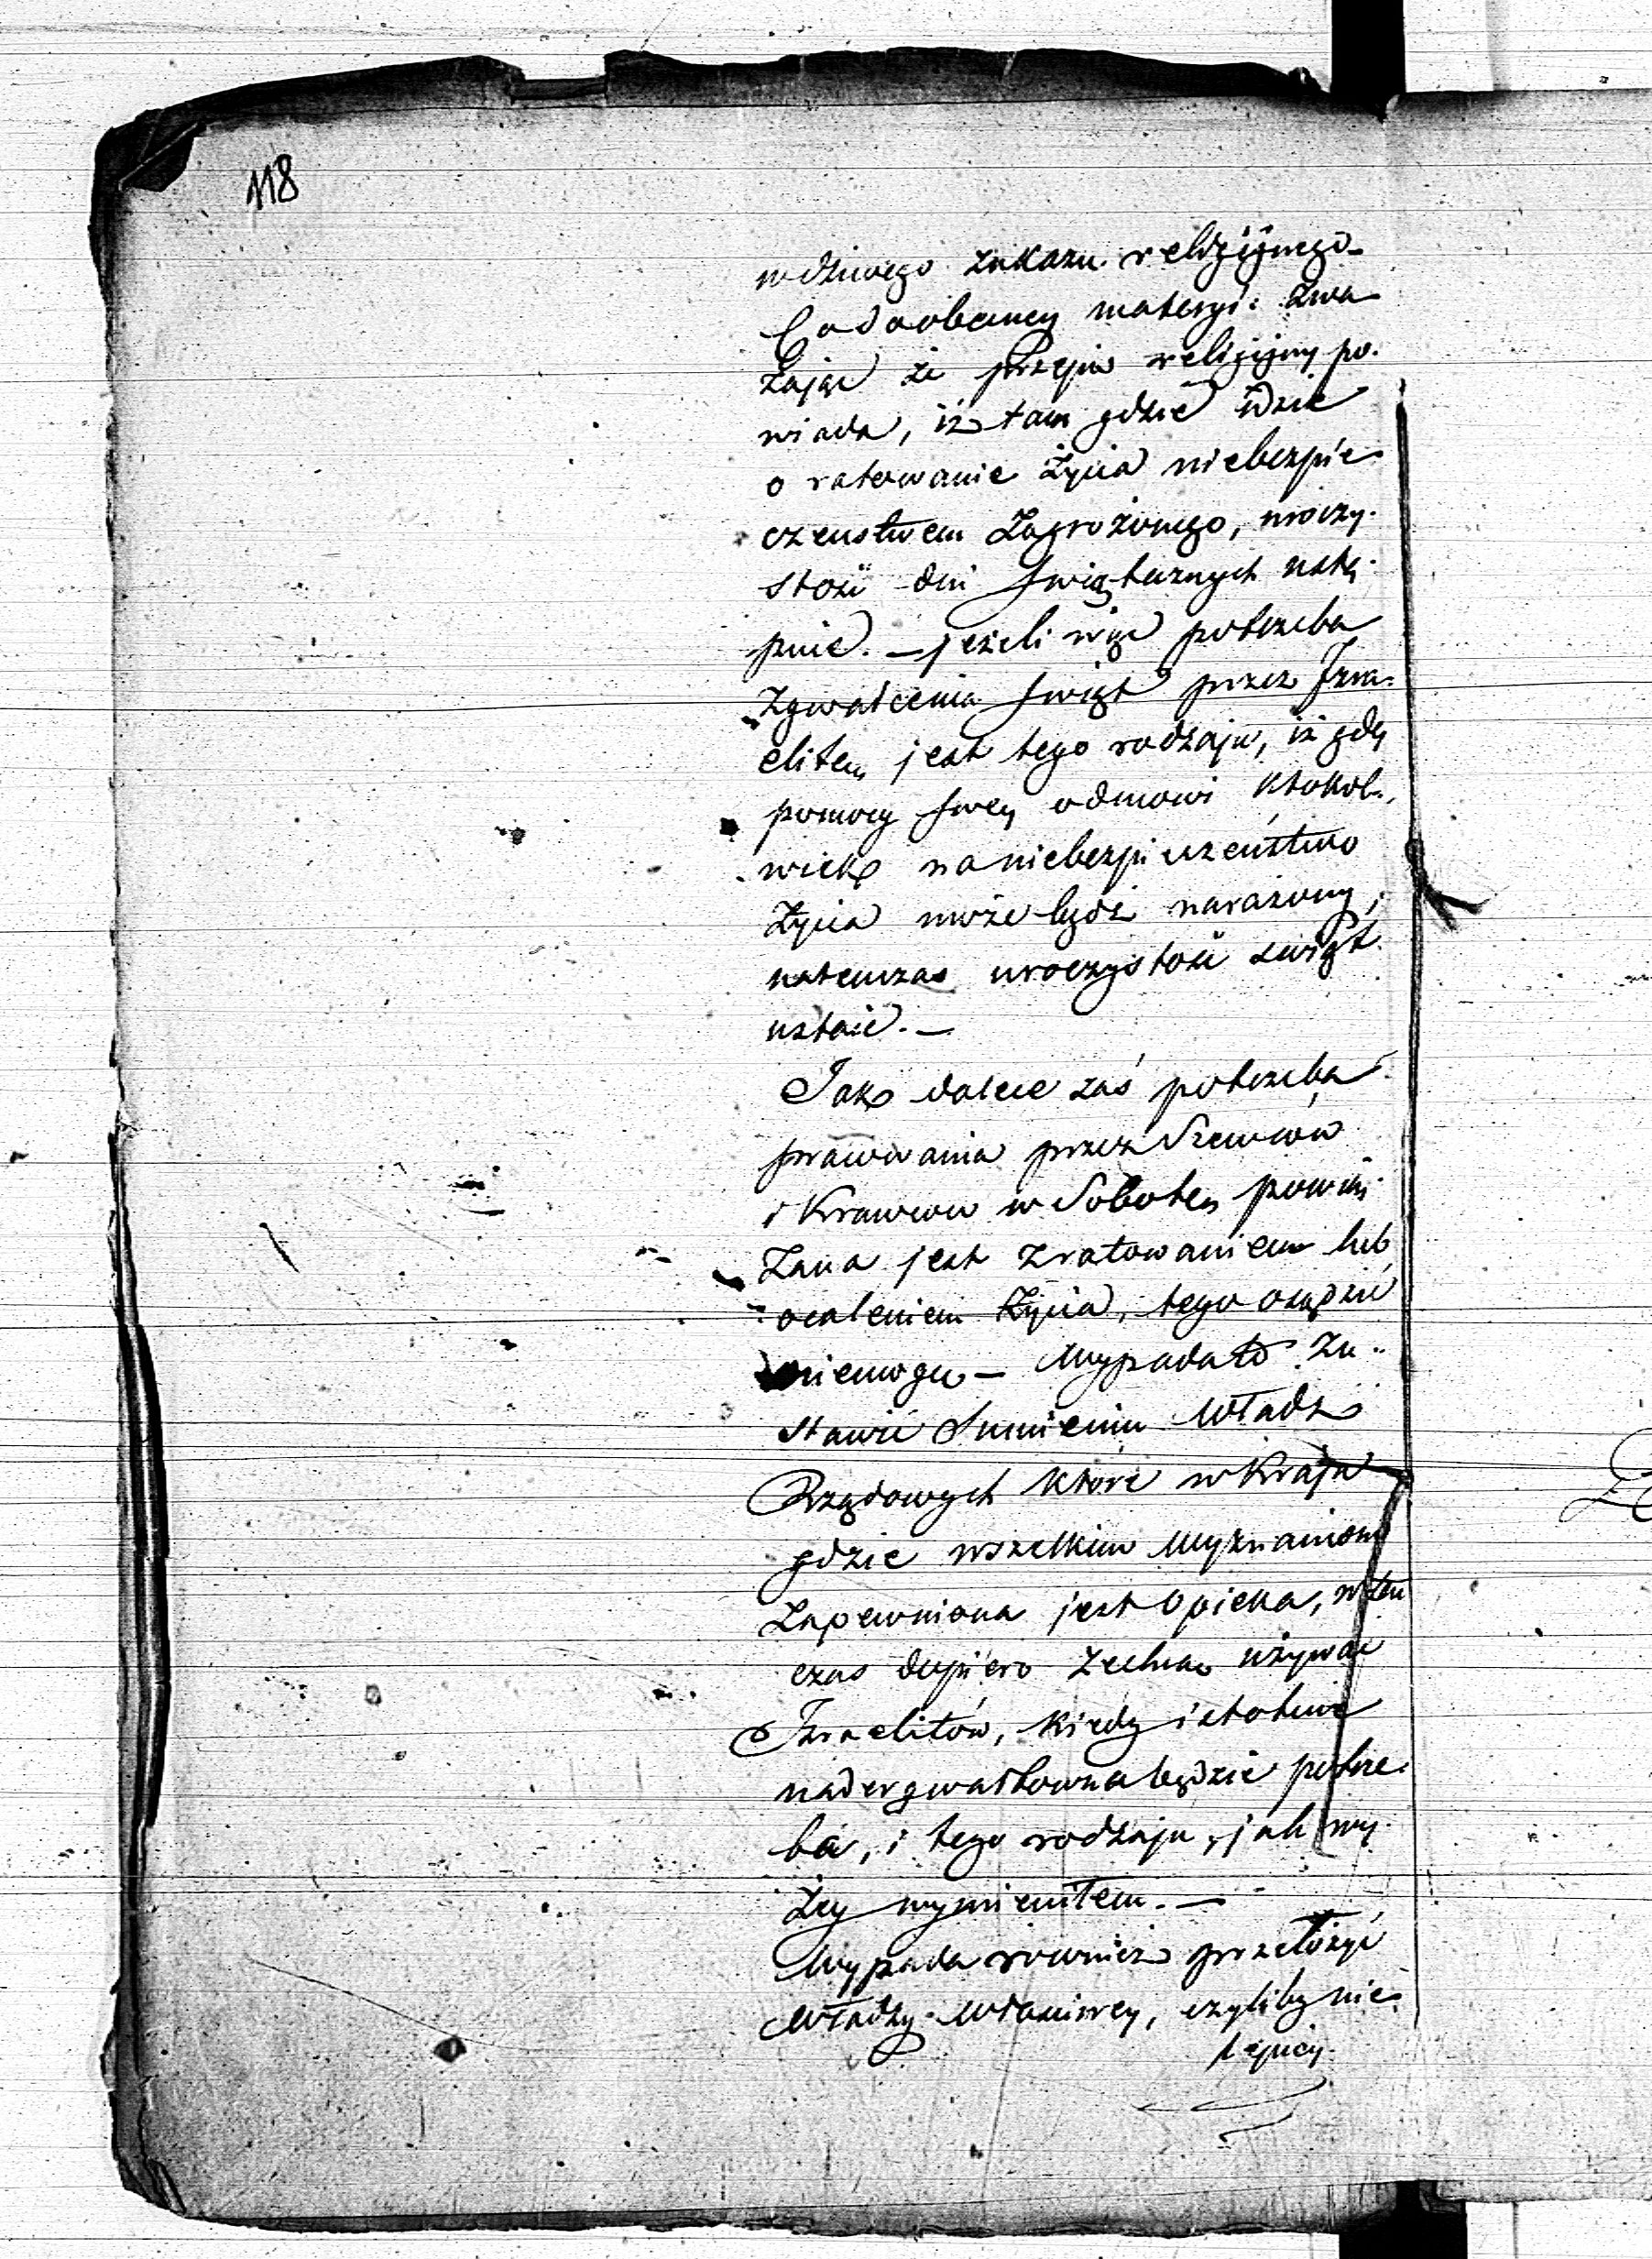 118
wdziwego zakazu religijnego
Co do obecney materyi: zwa
żając że przepis religijny po-
wiada, iż tam gdzie idzie
o ratowanie życia niebezpie
czenstwem zagrożonego, uroczy-
stość dni świątecznych ustę-
puie. — jeżeli więc potrzeba
zgwałcenia świąt przez Izra-
elitę jest tego rodzaju, iż gdy
pomocy swey odmowi ktokol-
wiek na niebezpieczeństwo
życia może bydź narażony,
natenczas uroczystość świąt
ustaie. —
Jak dalece zaś potrzeba
pracowania przez Szewców
i Krawców w Sobotę powią-
zana jest z ratowaniem lub
ocaleniem życia, tego osądzić
niemogę — Wypadało zo-
stawić Sumieniu Władz
Rządowych które w Kraju
gdzie wszelkim Wyznaniom
zapewniona jest Opieka, w ten
czas dopiero zechcą używać
Izraelitów, kiedy istotnie
nader gwałtowna będzie potrze-
ba, i tego rodzaju, jak wy-
żey wymieniłem. —
Wypada rownież przełożyć
Władzy Własciwey, czyliby nie